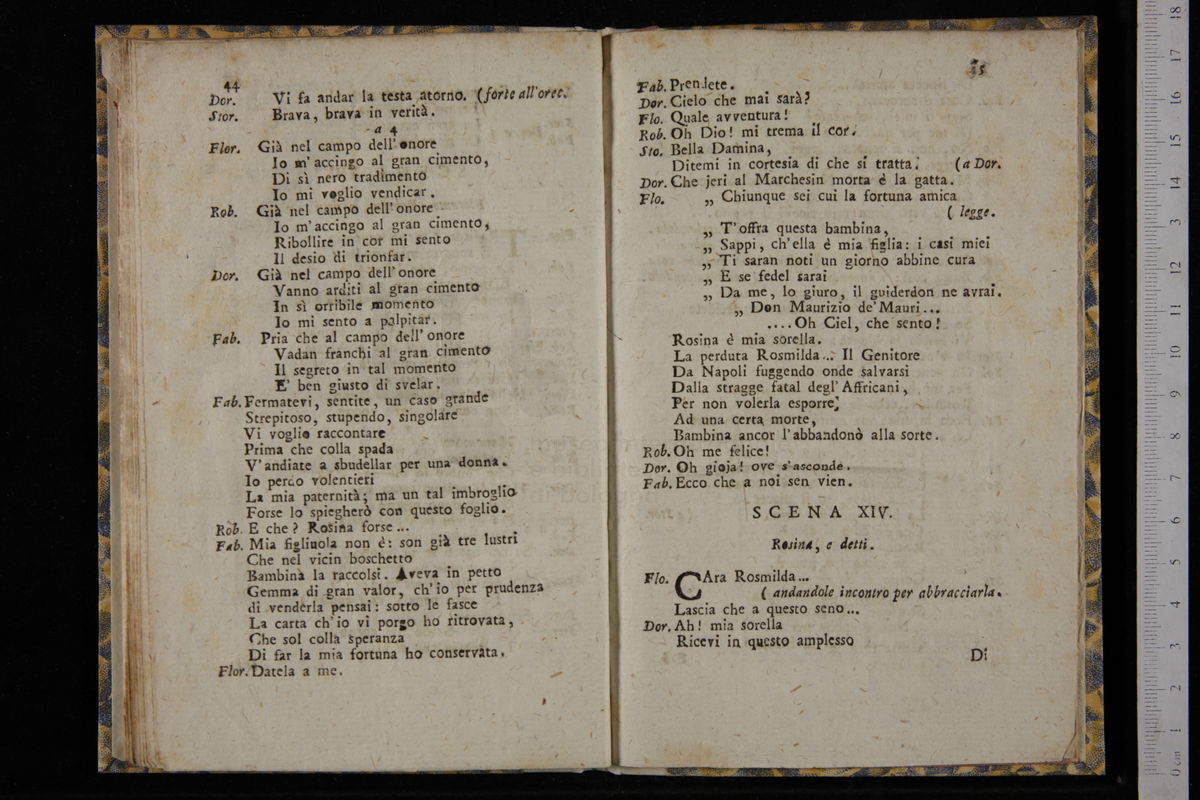 44
Dor. Vi fa andar la testa atorno. (forte all'orec.
Stor. Brava, brava in verità.
- a 4
Flor. Già nel campo dell'onore
Io m'accingo al gran cimento,
Di sì nero tradimento
Io mi voglio vendicar.
Rob. Già nel campo dell'onore
Io m'accingo al gran cimento,
Ribollire in cor mi sento
Il desio di trionfar.
Dor. Già nel campo dell'onore
Vanno arditi al gran cimento
In sì orribile momento
Io mi sento a palpitar.
Fab. Pria che al campo dell'onore
Vadan franchi al gran cimento
Il segreto in tal momento
E' ben giusto di svelar.
Fab. Fermatevi, sentite, un caso grande
Strepitoso, stupendo, singolare
Vi voglio raccontare
Prima che colla spada
V'andiate a sbudellar per una donna.
Io perdo volentieri
La mia paternità; ma un tal imbroglio
Forse lo spiegherò con questo foglio.
Rob. E che? Rosina forse...
Fab. Mia figliuola non è: son già tre lustri
Che nel vicin boschetto
Bambina la raccolsi. Aveva in petto
Gemma di gran valor, ch'io per prudenza
di venderla pensai: sotto le fasce
La carta ch'io vi porgo ho ritrovata,
Che sol colla speranza
Di far la mia fortuna ho conservata.
Flor. Datela a me.
45
Fab. Prendete.
Dor. Cielo che mai sarà?
Flo. Quale avventura!
Rob. Oh Dio! mi trema il cor.
Sto. Bella Damina,
Ditemi in cortesia di che si tratta. (a Dor.
Dor. Che jeri al Marchesin morta è la gatta.
Flo. „ Chiunque sei cui la fortuna amica
( legge.
„ T'offra questa bambina,
„ Sappi, ch'ella è mia figlia: i casi miei
„ Ti saran noti un giorno abbine cura
„ E se fedel sarai
„ Da me, lo giuro, il guiderdon ne avrai.
„ Don Maurizio de'Mauri...
....Oh Ciel, che sento!
Rosina è mia sorella.
La perduta Rosmilda... Il Genitore
Da Napoli fuggendo onde salvarsi
Dalla stragge fatal degl'Affricani,
Per non volerla esporre,
Ad una certa morte,
Bambina ancor l'abbandonò alla sorte.
Rob. Oh me felice!
Dor. Oh gioja! ove s'asconde.
Fab. Ecco che a noi sen vien.
SCENA XIV.
Rosina, e detti.
Flo. CAra Rosmilda...
( andandole incontro per abbracciarla.
Lascia che a questo seno...
Dor. Ah! mia sorella
Ricevi in questo amplesso
Di
0 cm 1 2 3 4 5 6 7 8 9 10 11 12 13 14 15 16 17 18